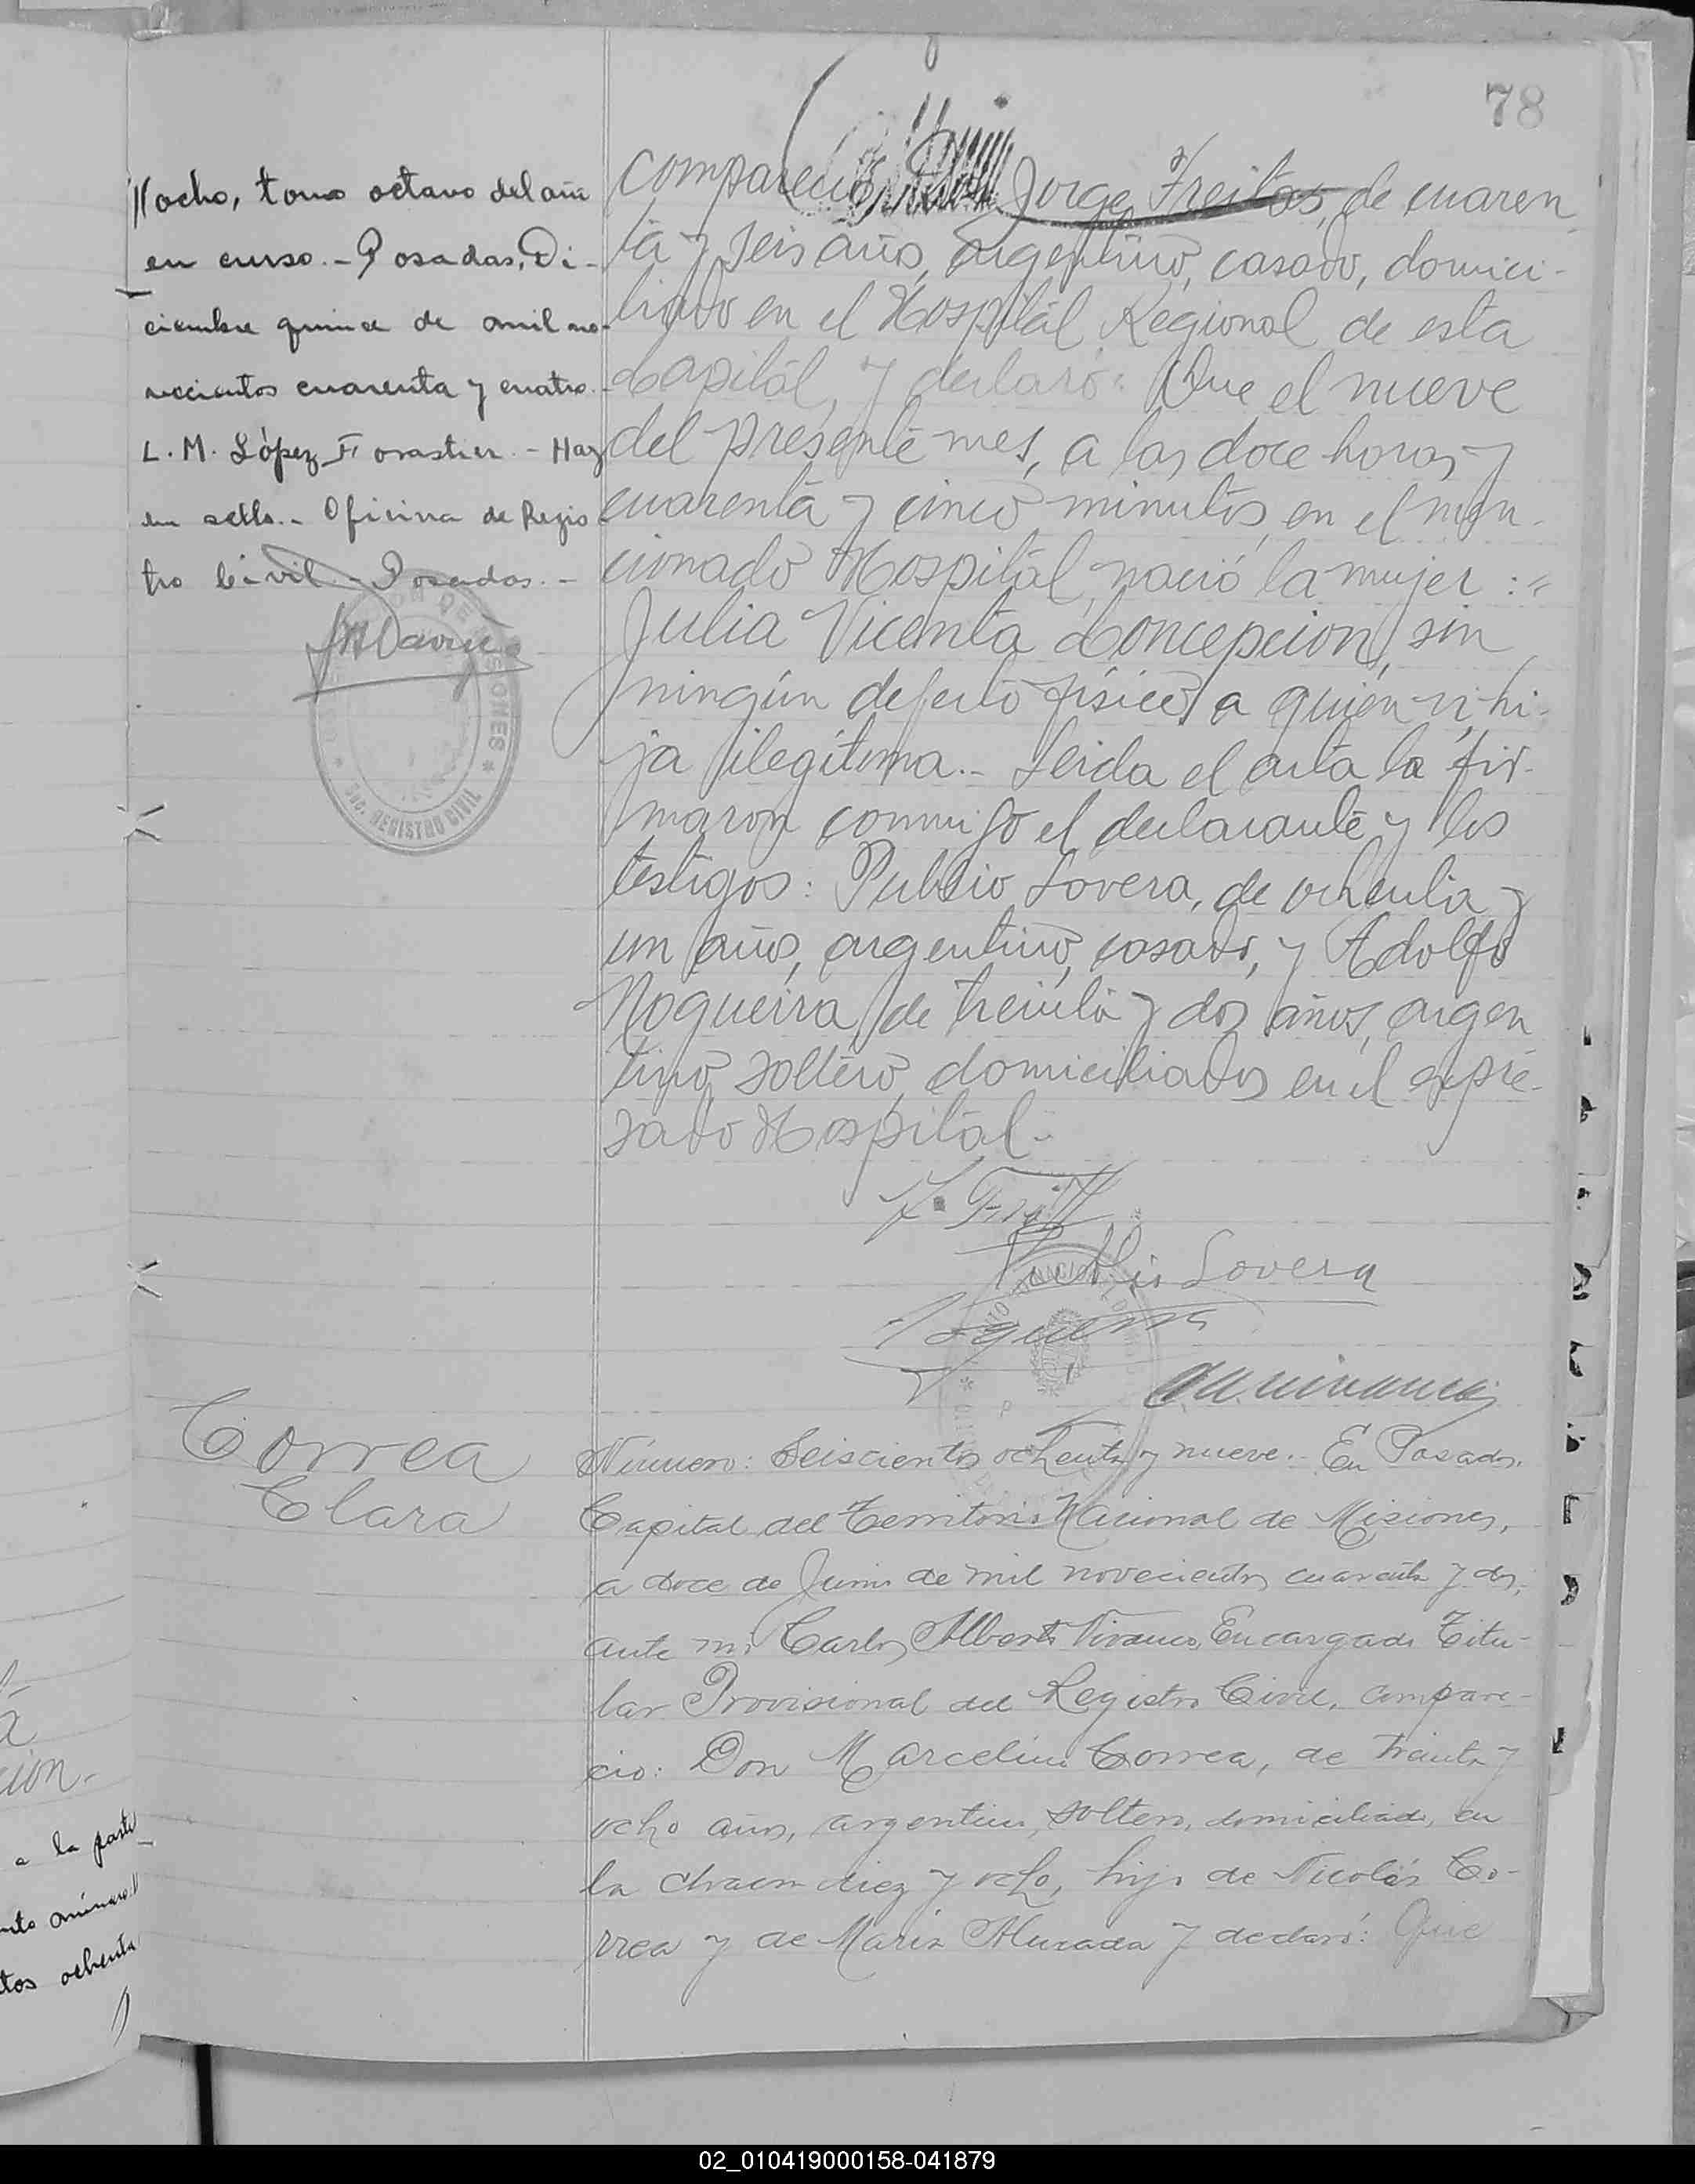 78
ocho, tomo octavo del año
en curso.- Posadas, Di-
ciembre quince de mil no-
vecientos cuarenta y cuatro.-
L. M. López Forastier.- Hay
un sello.- Oficina de Regis
tro Civil.- Posadas.-
MISIONES
REGISTRO CIVIL
compareció Jorge Freitas, de cuaren
ta y seis años, argentino, casado, domici-
liado en el Hospital Regional de esta
Capital, y declaró: Que el nueve
del presente mes, a las doce horas y
cuarenta y cinco minutos, en el men-
cionado Hospital, nació la mujer :=
Julia Vicenta Concepcion, sin
ningún defecto físico, a quien vi, hi-
ja ilegítima.- Leida el acta la fir-
maron conmigo el declarante y los
testigos: Publio Lovera, de ochenta y
un años, argentino, casado, y Adolfo
Nogueira, de treinta y dos años, argen
tino, soltero, domiciliados en el expre-
sado Hospital.-
Publio Lovera
Correa
Clara
Número: Seiscientos ochenta y nueve.- En Posadas,
Capital del Territorio Nacional de Misiones,
a doce de Junio de mil novecientos cuarenta y dos,
ante mi Carlos Alberto Vivanco, Encargado Titu-
lar Provisional del Registro Civil, compare-
cio: Don Marcelino Correa, de treinta y
ocho años, argentino, soltero, domiciliado, en
la chacra diez y ocho, hijo de Nicolás Co-
rrea y de Maria y declaró: Que
a la parte
ochenta
02_010419000158-041879